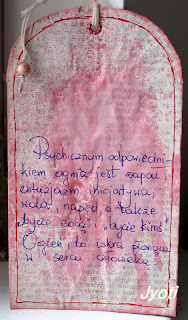 Psychicznym odpowiedni-
kiem ognia jest zapał
entuzjazm, inicjatywa
wola, napęd, a także
„bycie sobą” i „bycie kimś”
Ogień to iskra płonąca
w sercu człowieka
Jyoti